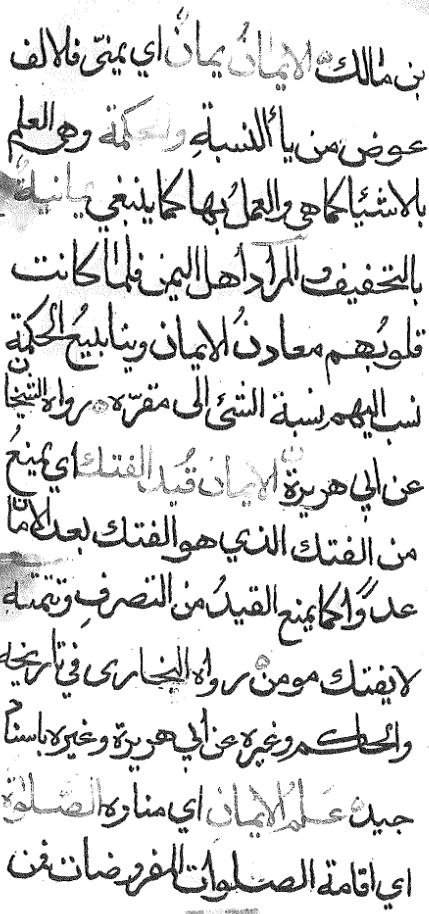 بن مالك الايمانُ يمانٌ اي يمنيّ فالالف
عوض من يا النسبةِ والحكمة وهي العلم
بالاشيا كما هي والعملُ بها كما ينبغي يمانيةٌ
بالتخفيف والمراد اهل اليمن فلما كانت
قلوبُهم معادنُ الايمان وينابيعُ الحكمةِ
نسب اليهم نسبة الشئ الى مقرّه رواه الشيخان
عن ابي هريرة الايمانُ قَيْد الفتك اي يمنعُ
من الفتك الذي هو الفتك بعد الامان
غدرًا كما يمنع القيدُ من التصرفِ وتتمته
لا يفتك مومن رواه البخارى في تاريخه
والحاكم وغيره عن ابي هريرة وغيره باسناد
جيد عَلمُ الايمانِ اي مناره الصّلوة
اي اقامة الصلوات المفروضات فمن